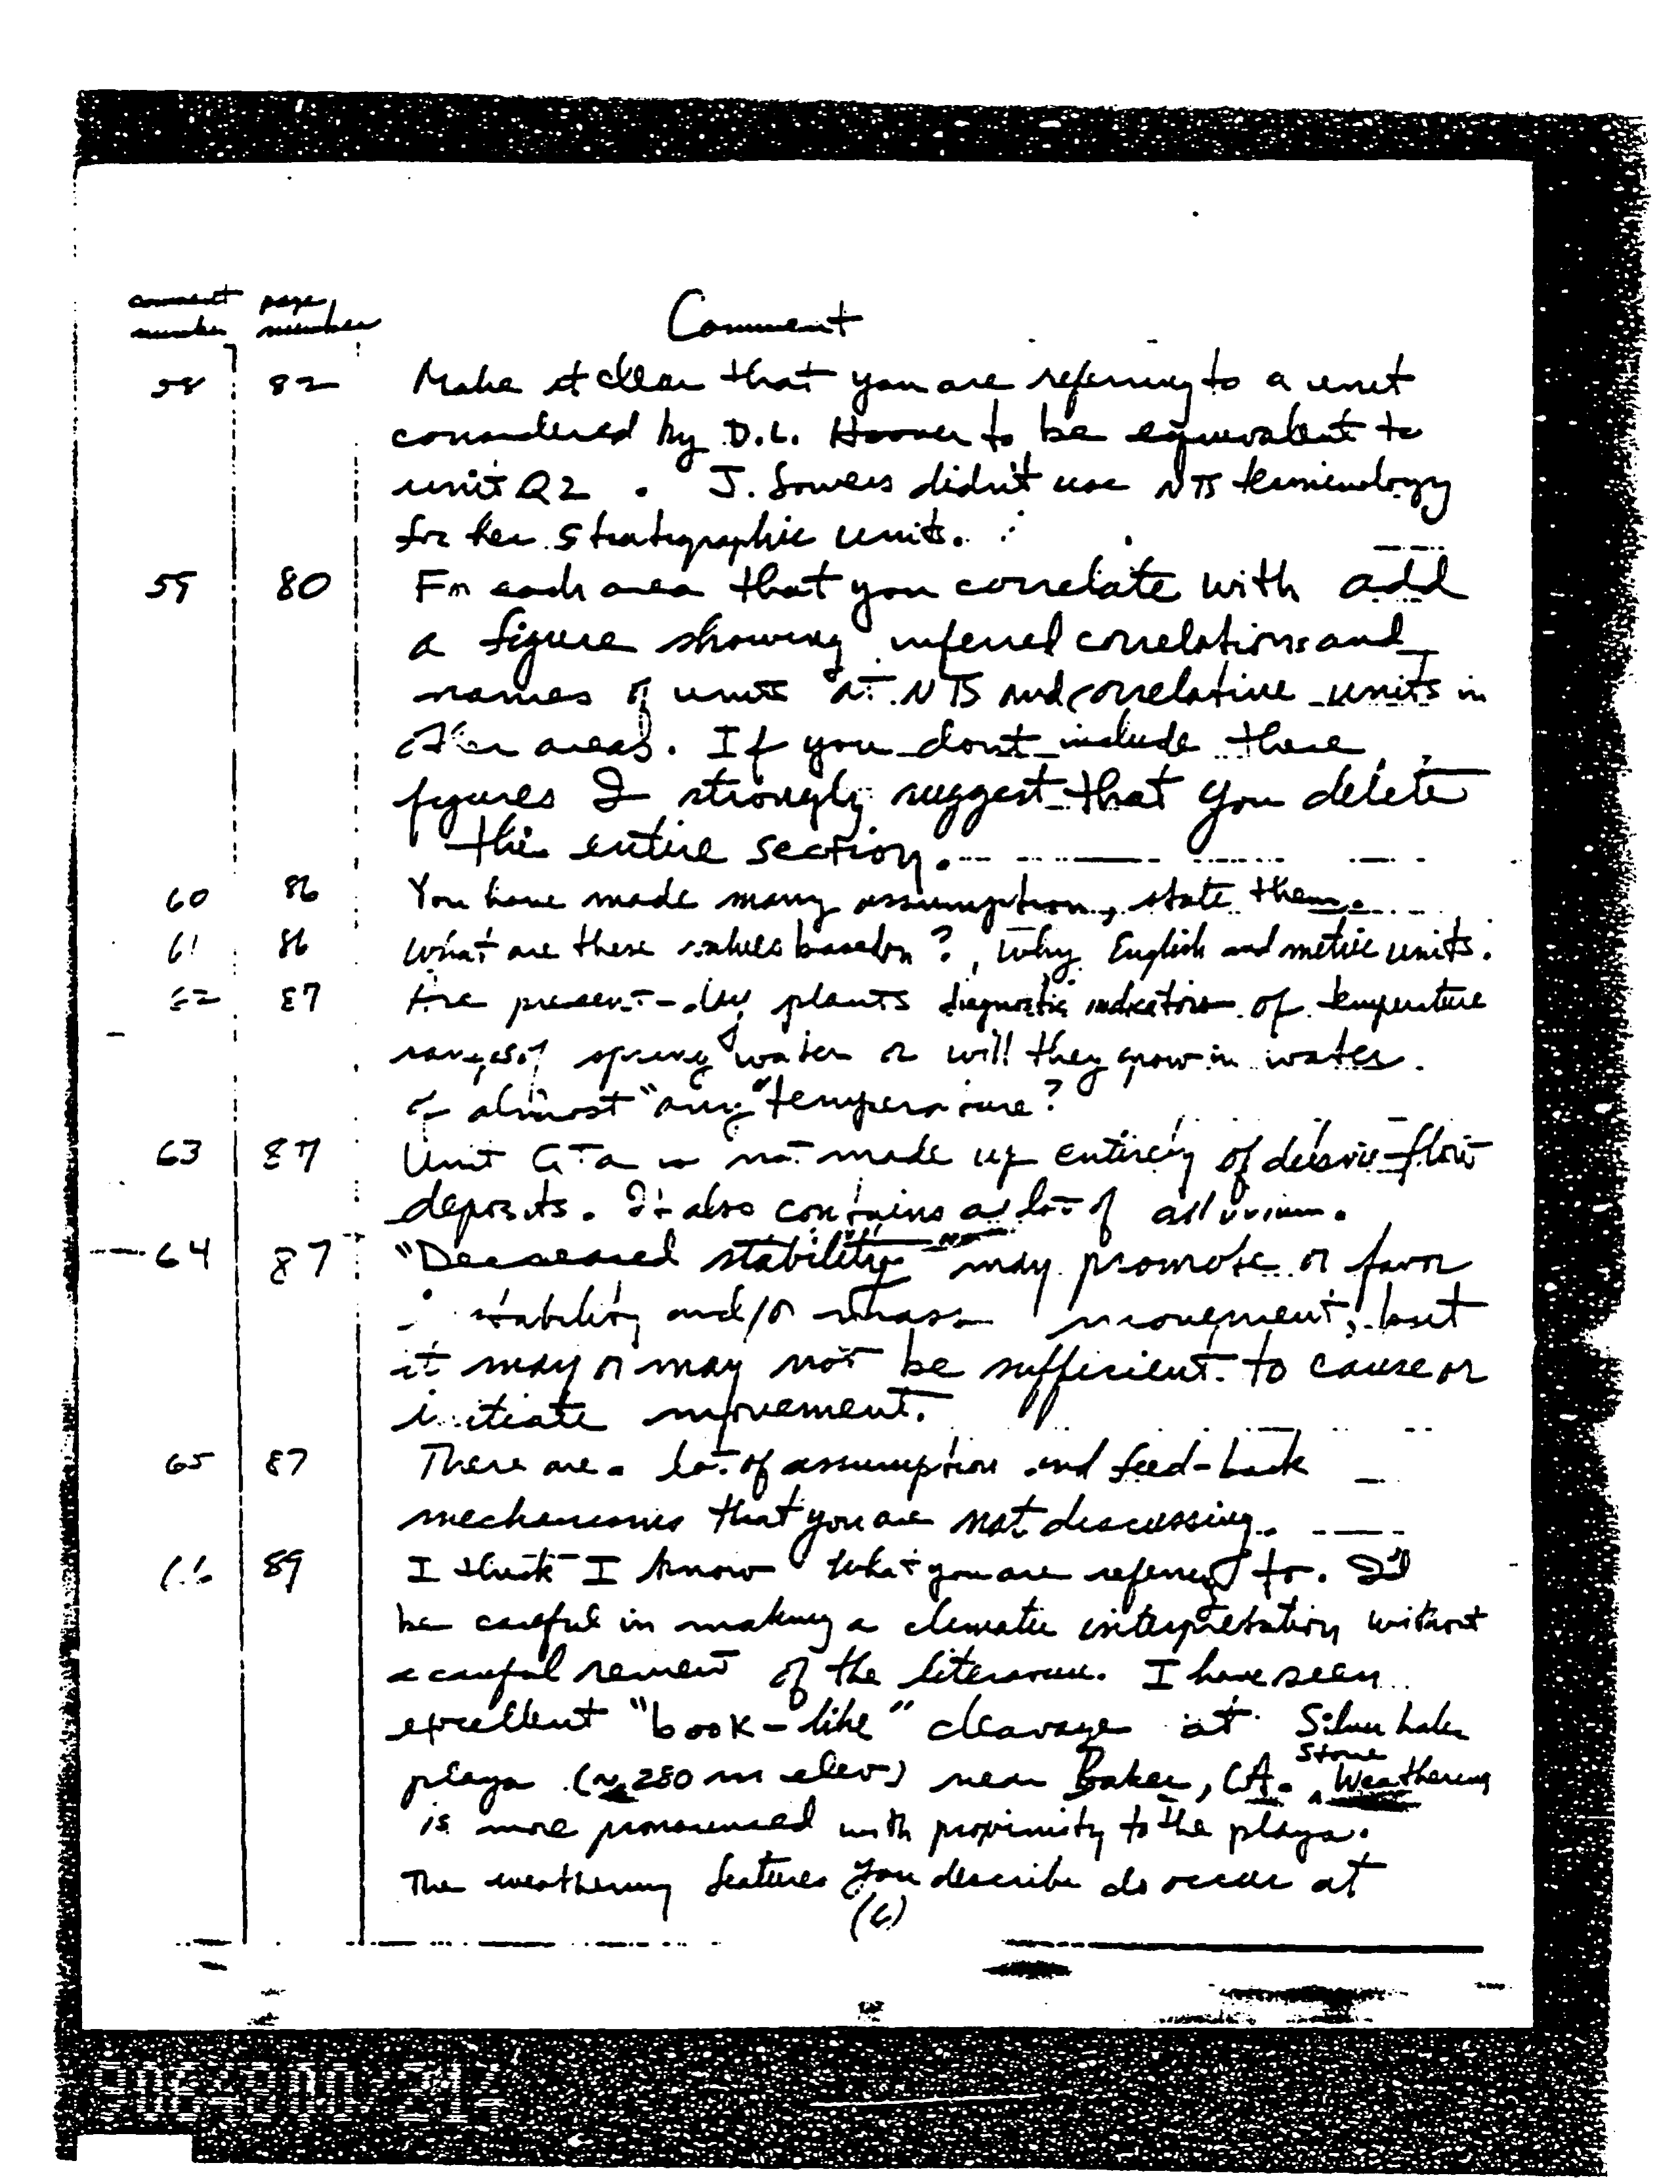 comment page
number number
Comment
58 82 Make it clear that you are referring to a unit
considered by D.L. Hoover to be equivalent to
unit Q2. J. Sowers didn't use NTS terminology
for her stratigraphic units.
59 80 For each area that you correlate with add
a figure showing inferred correlations and
names of units at NTS and correlative units in
other areas. If you don't include these
figures I strongly suggest that you delete
this entire section.
60 86 You have made many assumptions, state them.
61 86 What are these values based on?, Why English and metric units.
62 87 Are present-day plants diagnostic indicators of temperature
ranges of spring water or will they grow in water
of almost "any" temperature?
63 87 Unit QTa is not made up entirely of debris-flow
deposits. It also contains a lot of alluvium.
64 87 "Decreased stability" may promote or favor
stability and/or mass movement, but
it may or may not be sufficient to cause or
initiate movement.
65 87 There are a lot of assumptions and feed-back
mechanisms that you are not discussing.
66 89 I think I know what you are referring to. I'd
be careful in making a climatic interpretation without
a careful review of the literature. I have seen
excellent "book-like" cleavage at Silver Lake
playa (~280 m elev) near Baker, CA. Stone Weathering
is more pronounced with proximity to the playa.
The weathering features you describe do occur at
(6)